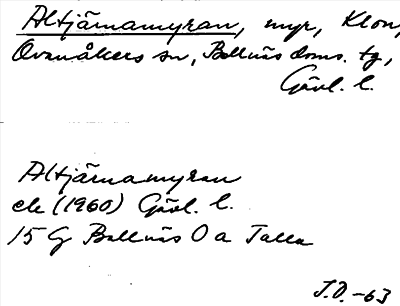 Altjärnamyran, myr, Klon,
Ovanåkers sn, Bollnäs doms. tg,
Gävl. l.
Altjärnamyran
ek (1960) Gävl. l.
15 G Bollnäs O a Talla
J.O. -63